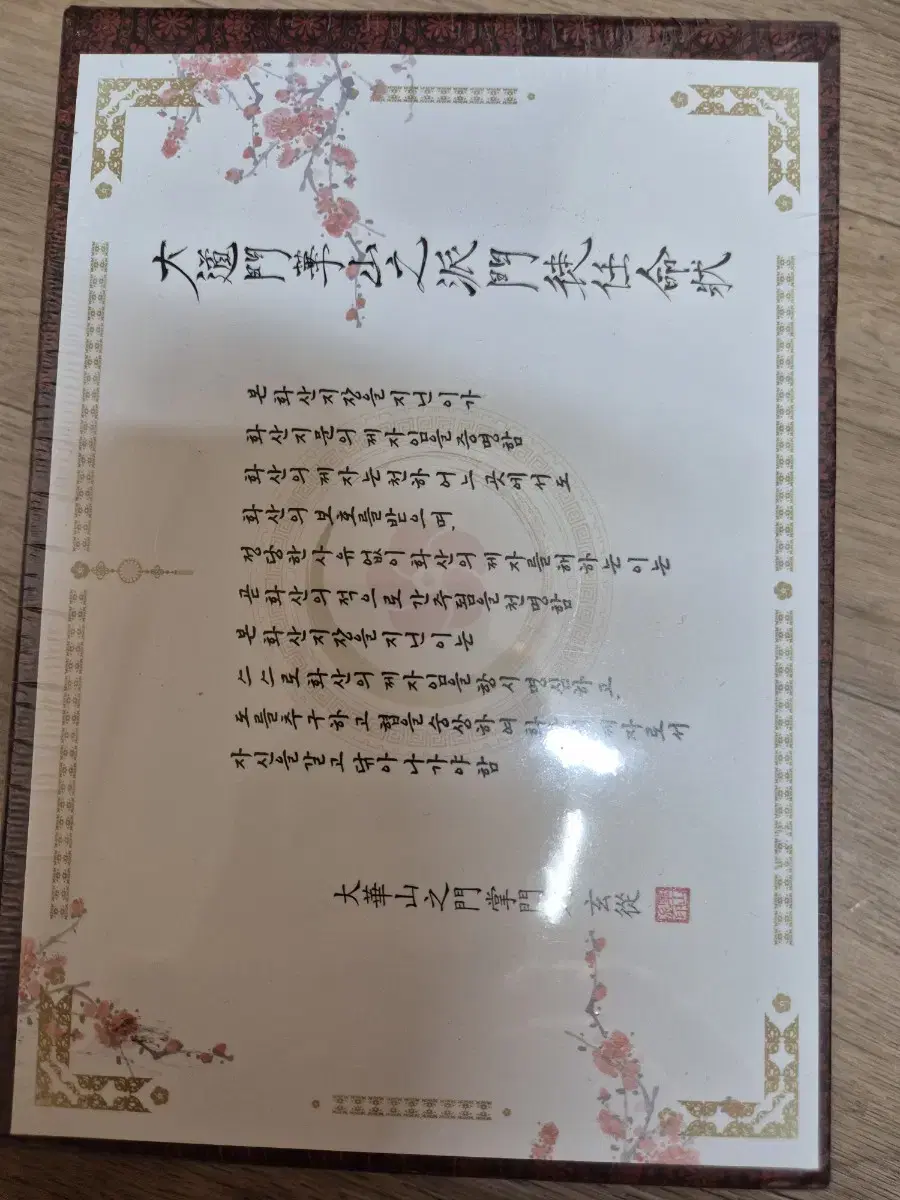 大道門華山之派門徒任命狀
본 화산지장을 지닌 이가
화산지문의 제자임을 증명함
화산의 제자는 천하 어느 곳에서도
화산의 보호를 받으며,
정당한 사유 없이 화산의 제자를 해하는 이는
곧 화산의 적으로 간주됨을 천명함
본 화산지장을 지닌 이는
스스로 화산의 제자임을 항시 명심하고,
도를 추구하고 협을 숭상하여 제자로서
자신을 갈고 닦아 나가야 함
大華山之門掌門 玄從